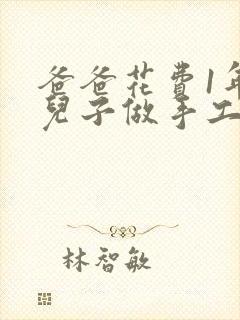 爸爸花費1年
兒子做手工
林智敏